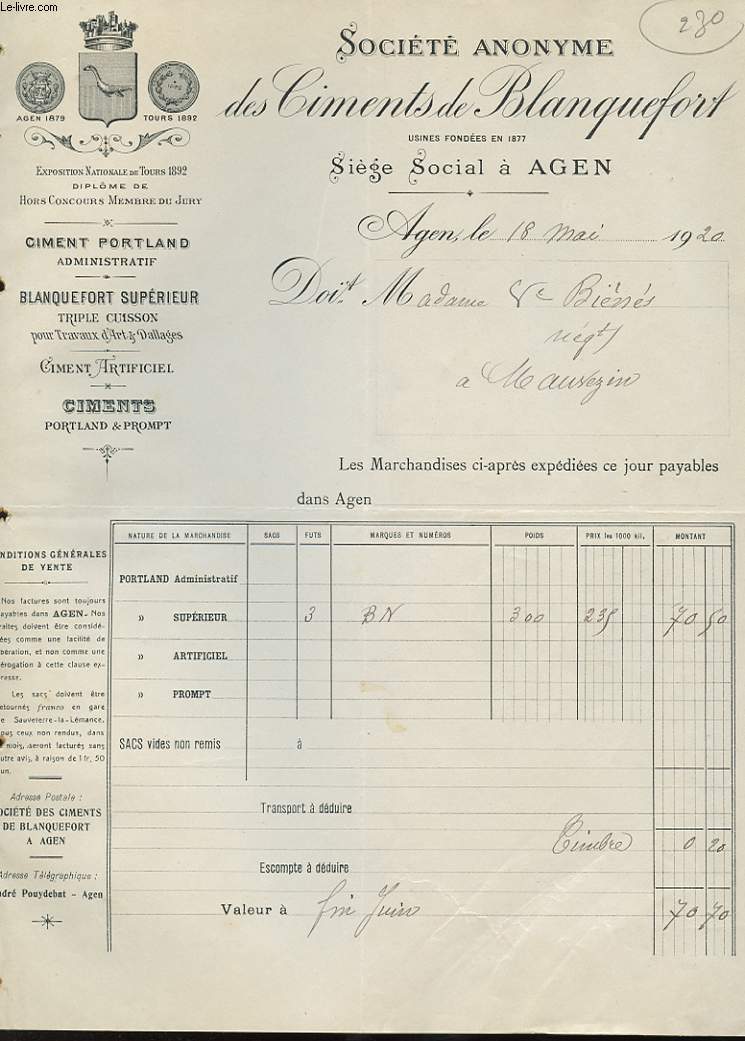 Le-livre.com
230
AGEN 1879
TOURS 1892
EXPOSITION NATIONALE DE TOURS 1892
DIPLÔME DE
HORS CONCOURS MEMBRE DU JURY
CIMENT PORTLAND
ADMINISTRATIF
BLANQUEFORT SUPÉRIEUR
TRIPLE CUISSON
pour Travaux d'Art & Dallages
CIMENT ARTIFICIEL
CIMENTS
PORTLAND & PROMPT
SOCIÉTÉ ANONYME
des Ciments de Blanquefort
USINES FONDÉES EN 1877
Siège Social à AGEN
Agen, le 18 mai 1920
Doit Madame Vve
négt
à Mauvezin
Les Marchandises ci-après expédiées ce jour payables
dans Agen
NDITIONS GÉNÉRALES
DE VENTE
Nos factures sont toujours
ayables dans AGEN. Nos
raites doivent être considé-
ées comme une facilité de
bération, et non comme une
érogation à cette clause ex-
resse.
Les sacs doivent être
etournés franco en gare
e Sauveterre-la-Lémance.
ous ceux non rendus, dans
mois, seront facturés sans
utre avis, à raison de 1 fr. 50
un.
Adresse Postale :
OCIÉTÉ DES CIMENTS
DE BLANQUEFORT
A AGEN
Adresse Télégraphique :
ndré Pouydebat - Agen
NATURE DE LA MARCHANDISE SACS FUTS MARQUES ET NUMÉROS POIDS PRIX les 1000 kil. MONTANT
PORTLAND Administratif
» SUPÉRIEUR 3 BN 300 235 70 50
» ARTIFICIEL
» PROMPT
SACS vides non remis à
Transport à déduire
Timbre 0 20
Escompte à déduire
Valeur à fin Juin 70 70